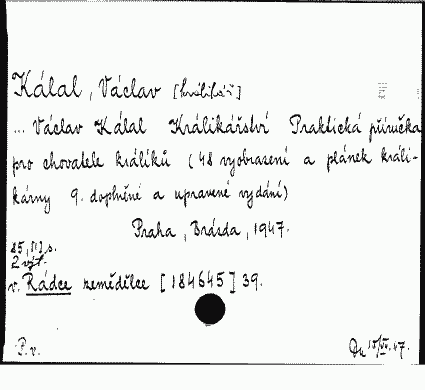 Kálal, Václav [králikář]
... Václav Kálal Králikářství Praktická příručka
pro chovatele králíků (48 vyobrazení a plánek králi-
kárny 9. doplněné a upravené vydání)
Praha, Brázda, 1947.
85, [I] s.
2 výt.
v. Rádce zemědělce [184645] 39.
P. v. Du 15/VII.47.